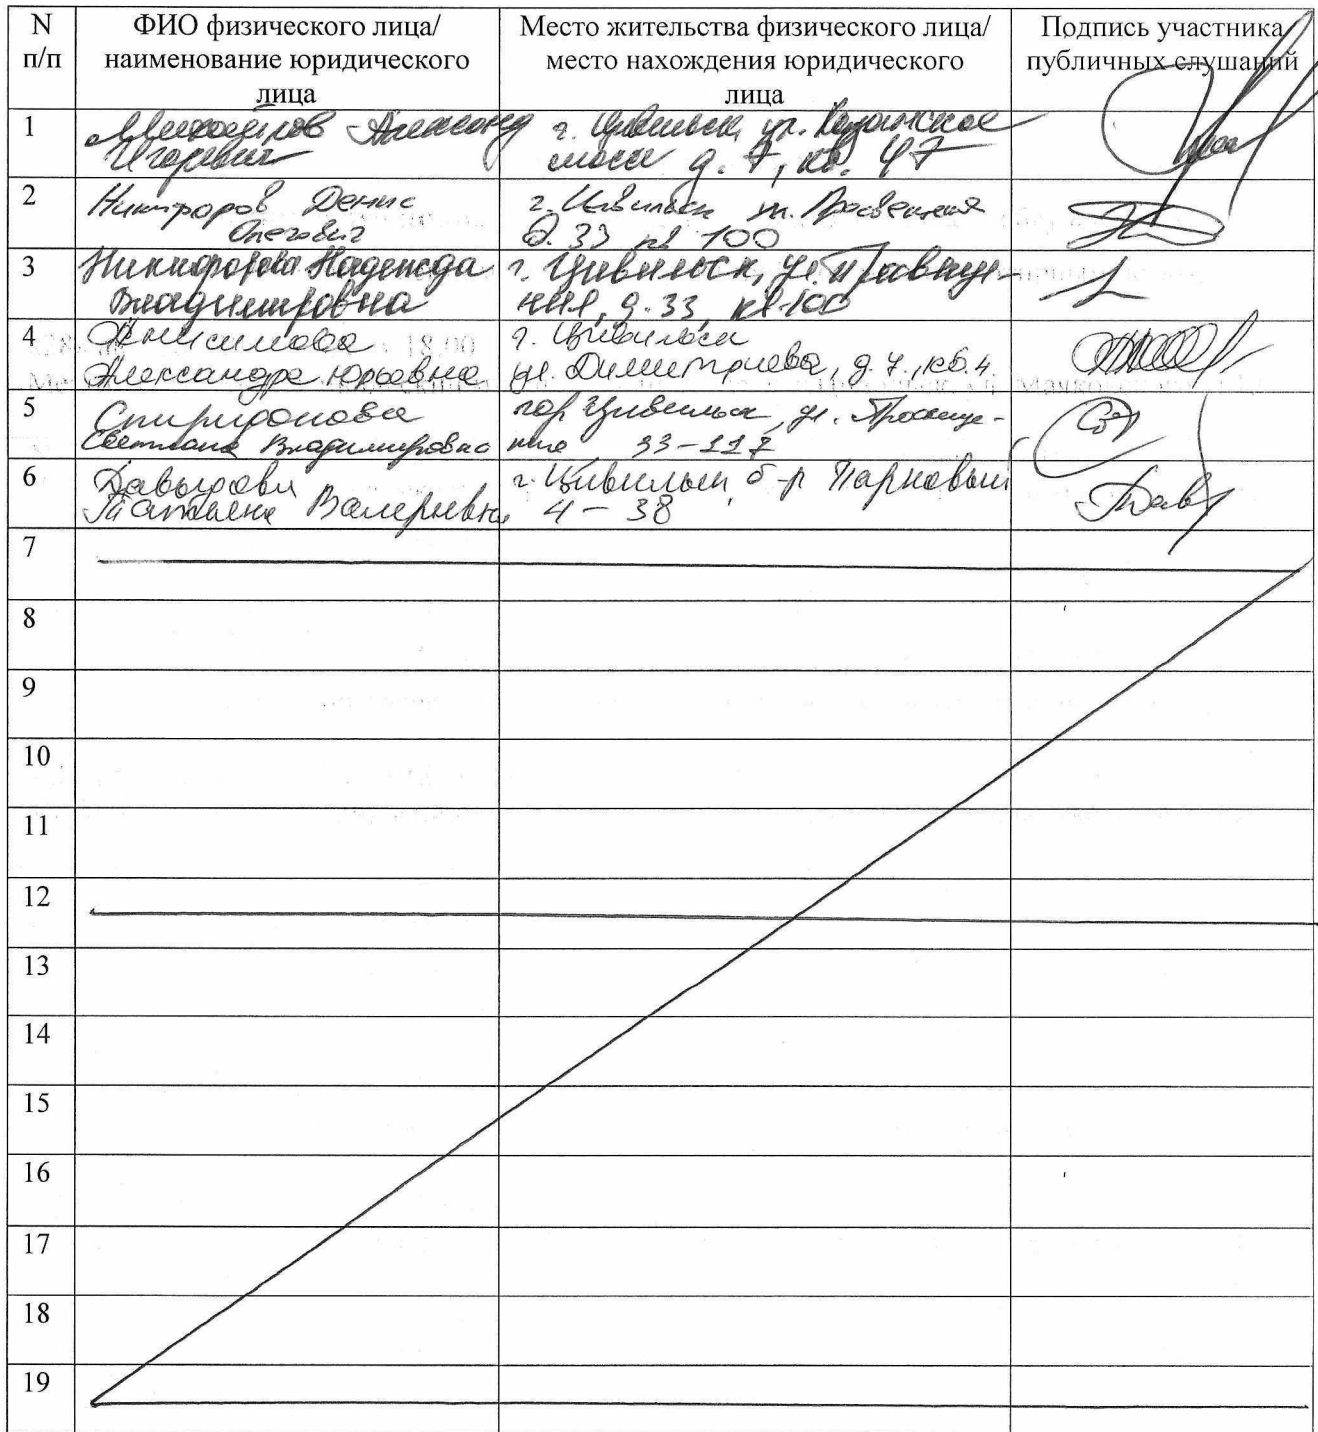 N
п/п
ФИО физического лица/
наименование юридического
лица
Место жительства физического лица/
место нахождения юридического
лица
Подпись участника
публичных слушаний
1
Игоревич
г. Цивильск, ул. Казанское
шоссе д. 7, кв. 47
2
Никифоров Денис
Олегович
г. Цивильск ул. Просвещения
д. 33 кв 100
3
Никифорова Надежда
Владимировна
г. Цивильск, ул.
ния, д. 33, кв 100
4
Анисимова
Александра Юрьевна
г. Цивильск
ул. Димитриева, д. 7, кв. 4
5
Спиридонова
Светлана Владимировна
гор Цивильск, ул. Просвеще-
ние 33-117
6
Давыдова
Татьяна Валерьевна
г. Цивильск, б-р Парковый
4-38
7
8
9
10
11
12
13
14
15
16
17
18
19